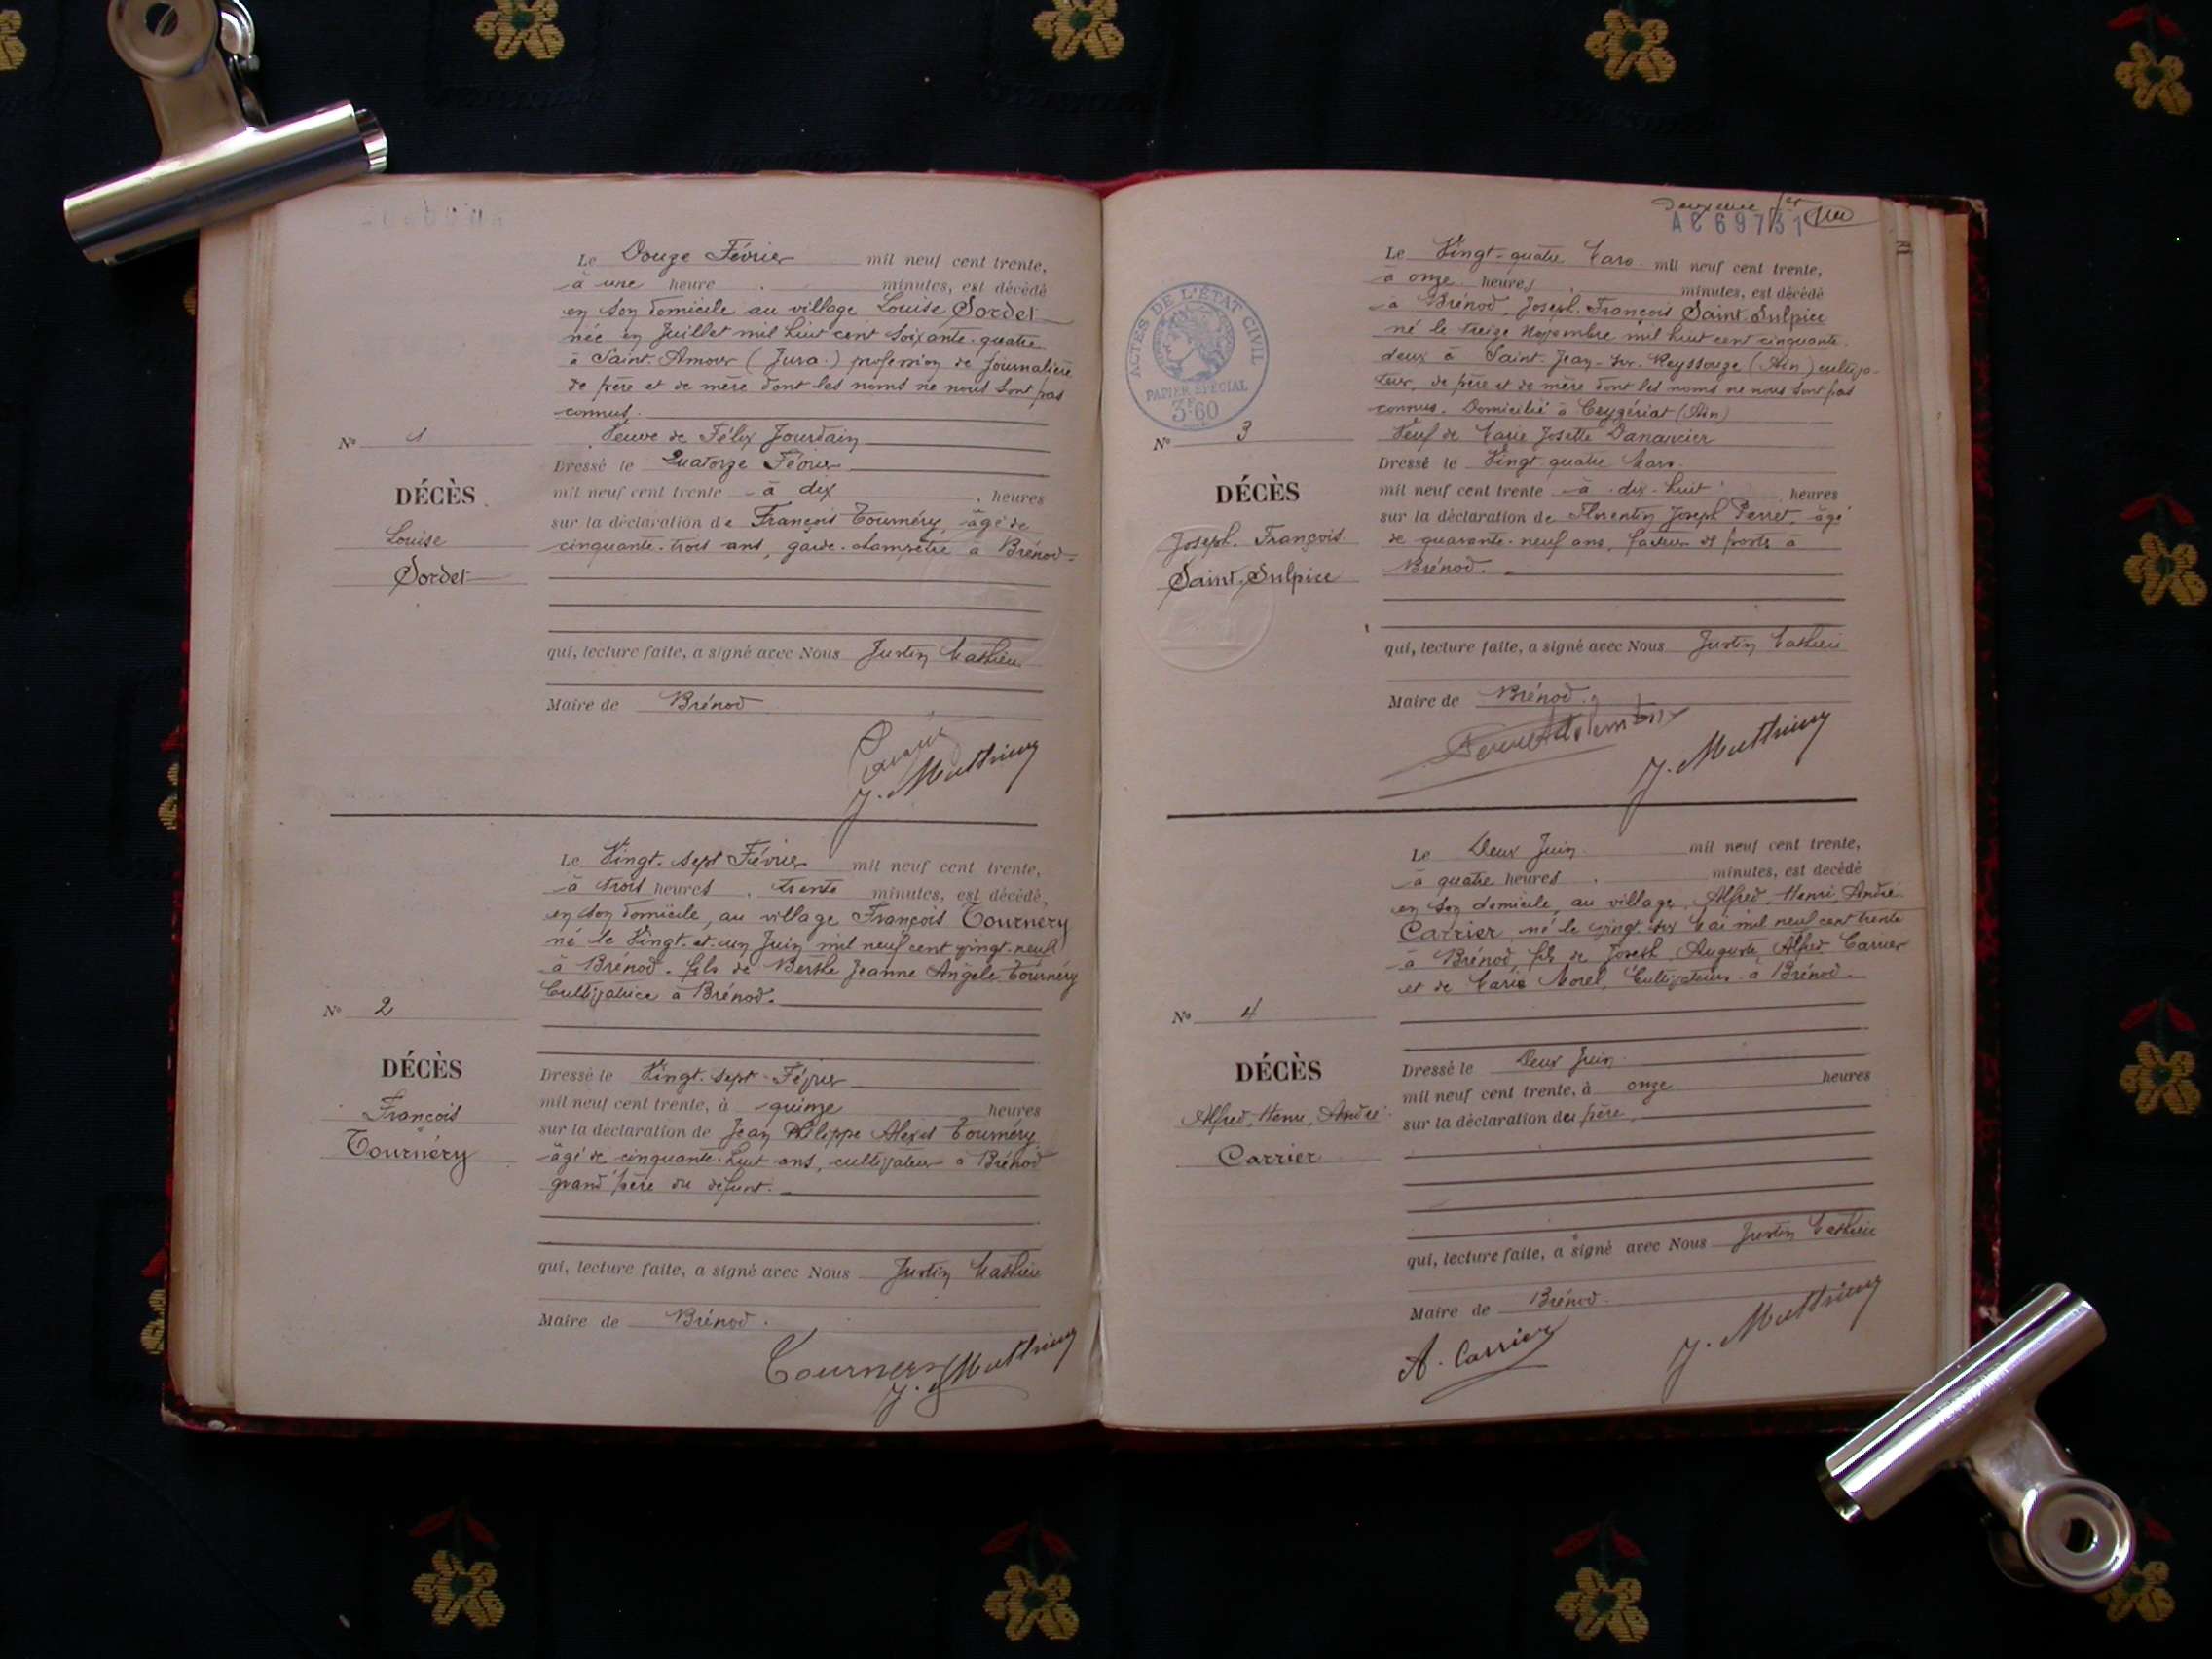 Le Douze Février mil neuf cent trente,
à une heure . minutes, est décédé
en son domicile au village Louise Sordet
née en Juillet mil huit cent soixante-quatre
à Saint-Amour (Jura) profession de journalière
de père et de mère dont les noms ne nous sont pas
connus.
Veuve de Félix Jourdain
Nº 1
Dressé le Quatorze Février
mil neuf cent trente à dix heures
DÉCÈS
sur la déclaration de François Tournéry, âgé de
cinquante-trois ans, garde-champêtre à Brénod.
Louise
Sordet
qui, lecture faite, a signé avec Nous Justin Mathieu
Maire de Brénod
J. Matthieu
Le Vingt-sept Février mil neuf cent trente,
à trois heures . trente minutes, est décédé,
en son domicile, au village François Tournéry
né le Vingt-et-un Juin mil neuf cent vingt-neuf
à Brénod. fils de Berthe Jeanne Angèle Tournéry
Cultivatrice à Brénod.
Nº 2
DÉCÈS
Dressé le Vingt-sept-Février
mil neuf cent trente, à quinze heures
François
Tournéry
sur la déclaration de Jean Philippe Alexis Tournéry
âgé de cinquante-huit ans, cultivateur à Brénod
grand'père du défunt.
qui, lecture faite, a signé avec Nous Justin Mathieu
Maire de Brénod.
Tournery J. Matthieu
Deuxième
AC69731
ACTES DE L'ÉTAT CIVIL
PAPIER SPÉCIAL
3F60
Le Vingt-quatre Mars mil neuf cent trente,
à onze heures . minutes, est décédé
à Brénod, Joseph François Saint-Sulpice
né le treize Novembre mil huit cent cinquante-
deux à Saint-Jean-sur-Reyssouze (Ain) cultiva-
teur, de père et de mère dont les noms ne nous sont pas
connus. Domicilié à Ceyzériat (Ain)
Veuf de Marie Josette Danancier
Nº 3
Dressé le Vingt quatre Mars.
mil neuf cent trente à dix-huit heures
DÉCÈS
sur la déclaration de Florentin Joseph Perret, âgé
de quarante-neuf ans, facteur des postes à
Brénod.
Joseph-François
Saint-Sulpice
qui, lecture faite, a signé avec Nous Justin Mathieu
Maire de Brénod.
J. Matthieu
Le Deux Juin mil neuf cent trente,
à quatre heures . minutes, est décédé
en son domicile, au village, Alfred, Henri, André
Carrier, né le vingt-six Mai mil neuf cent trente
à Brénod, fils de Joseph, Auguste, Alfred Carrier
et de Marie Morel, Cultivateurs à Brénod.
Nº 4
DÉCÈS
Dressé le Deux Juin
mil neuf cent trente, à onze heures
Alfred, Henri, André
Carrier
sur la déclaration du père.
qui, lecture faite, a signé avec Nous Justin Mathieu
Maire de Brénod.
A. Carrier J. Matthieu